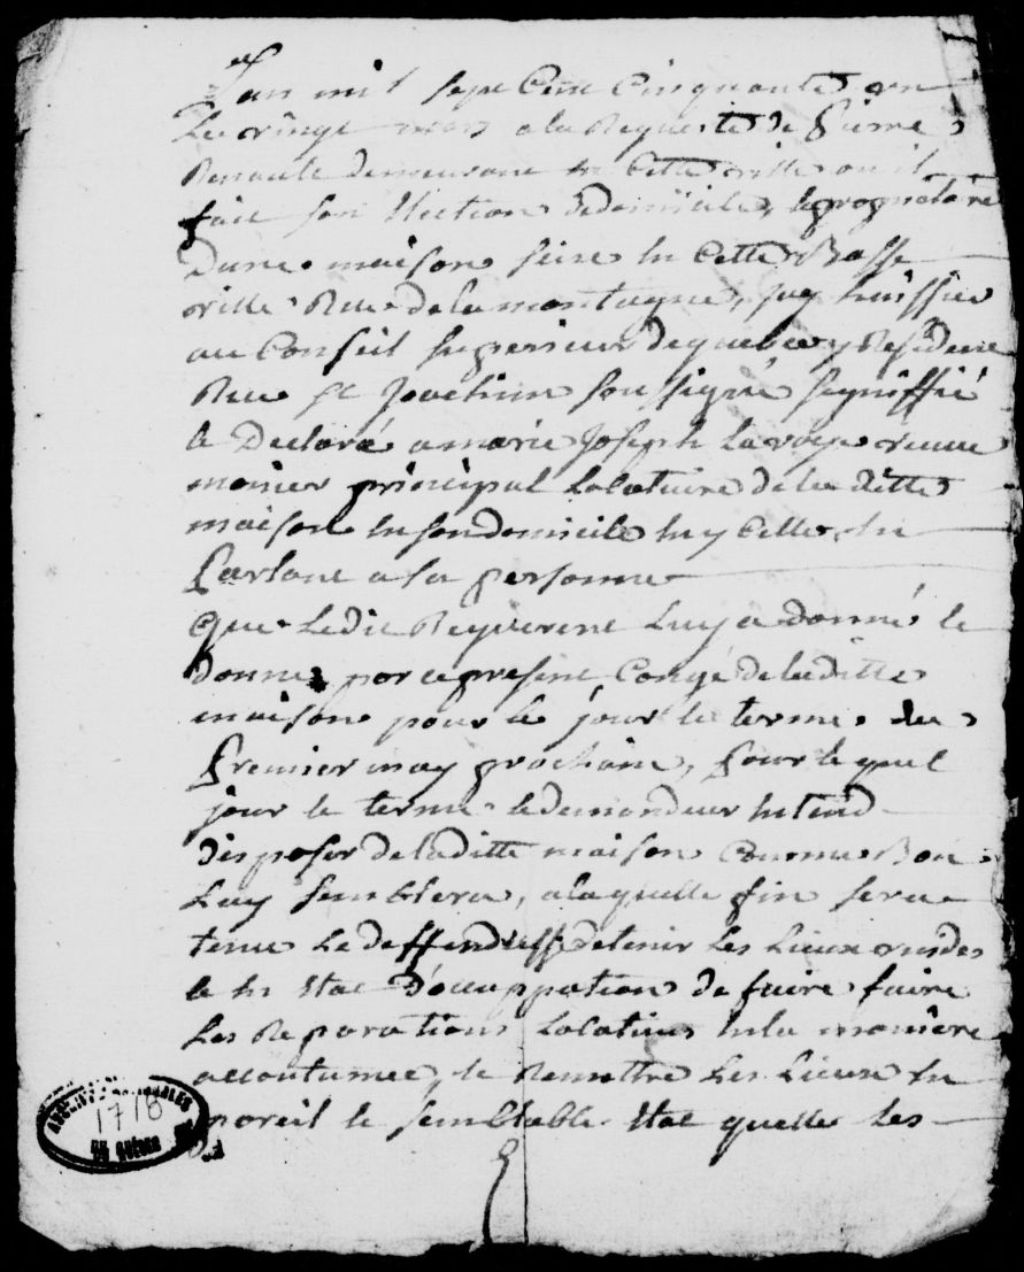 Lan mil sept Cent Cinquante un
Le vingt mars ala Requeste de Pierre
Renault demeurant En Cette ville ou il
fait son Election dedomicile, le propriétaire
Dune maison scise En Cette Basse
ville Rue dela montagne, jay huissier
au Conseil superieur dequebecq y Resident
Rue St Joachim soussigné signiffié
Et Declaré a marie Joseph Lavoye veuve
monier principal Locataire de la ditte
maison En son domicile En y Celle En
Parlant a sa personne
Que Ledit Requerent Luy a donné Et
donne par ce present Congé de laditte
maison pour le jour Et terme du
Premier may prochain, Pour le quel
jour Et terme le demandeur Entend
disposer de laditte maison Comme Bon
Luy semblera, a laquelle fin sera
tenue La deffenderesse detenir Les Lieux vuides
Et En Etat D'ocupation de faire faire
Les Reparations Locatives En la maniere
accoutumée, Et Remettre Les Lieux En
pareil Et semblable Etat quelle Les
ARCHIVES
DE QUÉBEC